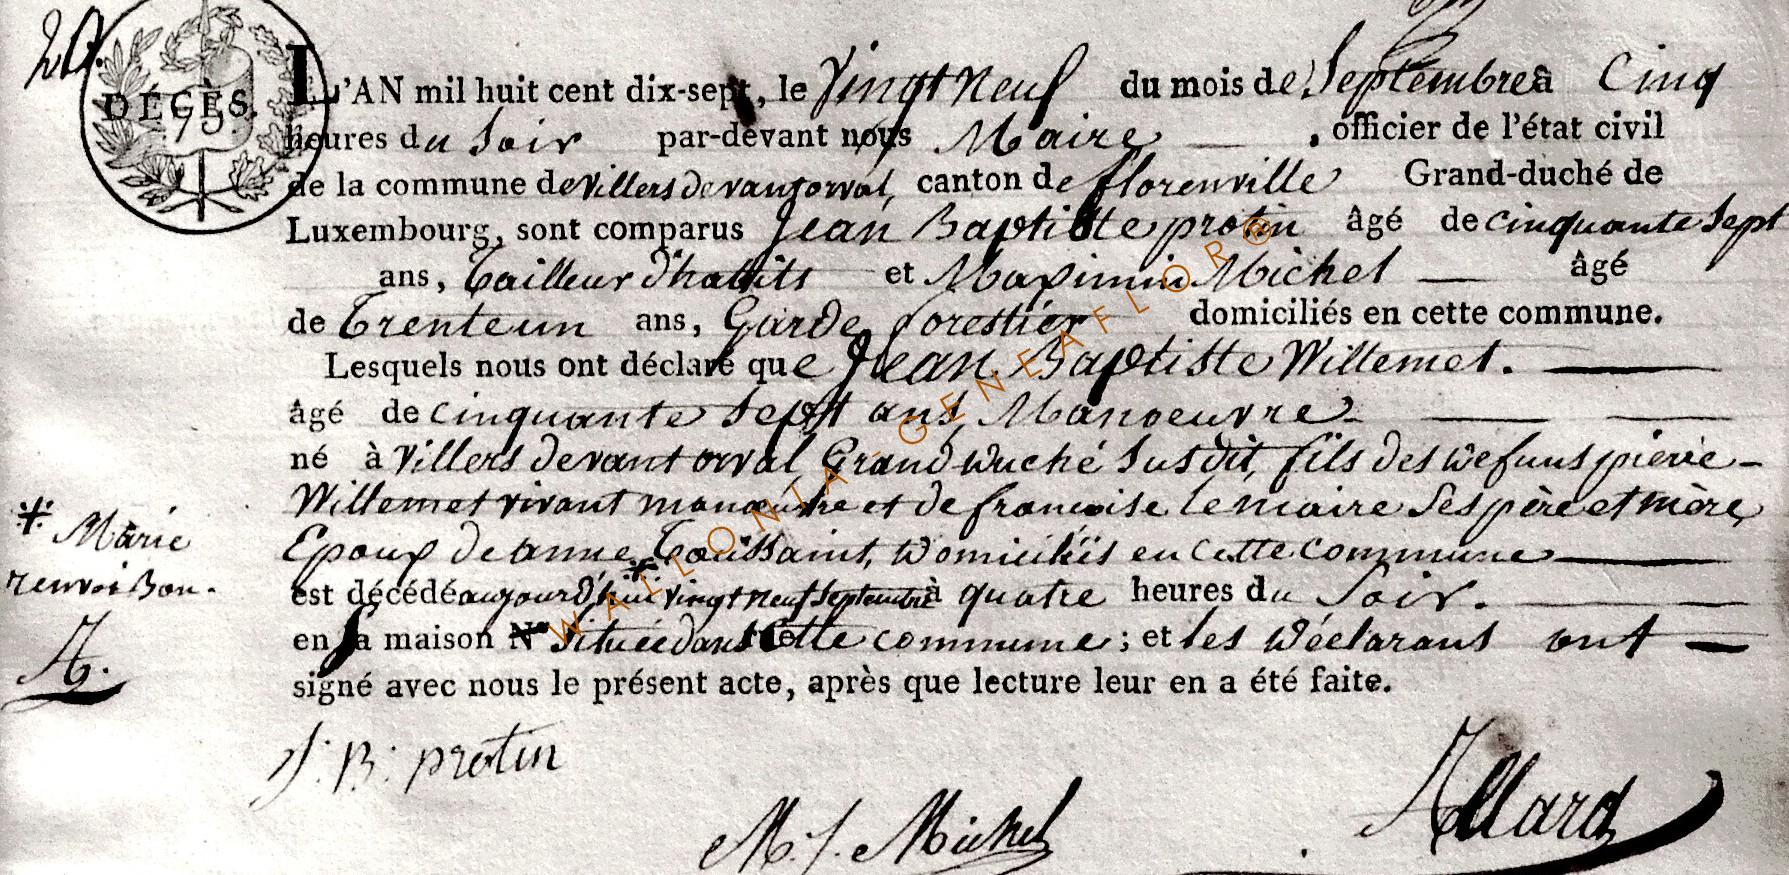 DÉCÈS.
75.
L'AN mil huit cent dix-sept, le Vingt Neuf du mois de Septembre à Cinq
heures du Soir par-devant nous Maire , officier de l'état civil
de la commune de Villers devant orval, canton de florenville Grand-duché de
Luxembourg, sont comparus Jean Baptiste protin âgé de cinquante Sept
ans, Tailleur d'habits et Maximin Michel âgé
de Trente un ans, Garde forestier domiciliés en cette commune.
Lesquels nous ont déclaré que Jean Baptiste Willemet.
âgé de cinquante Sept ans, Manoeuvre
né à Villers devant orval Grand Duché Susdit, fils des defuns pierre
Willemet vivant manœuvre et de françoise lemaire Ses père et mère,
Epoux de anne * Toussaint, Domiciliés en cette commune
est décédé aujourd'hui vingt neuf Septembre à quatre heures du Soir.
en sa maison N° Située dans Cette commune ; et les Déclarans ont
signé avec nous le présent acte, après que lecture leur en a été faite.
* Marie
renvoi Bon.
J. B. protin
M. J. Michel
Allard
WALLONIA - GENEAFLOR®